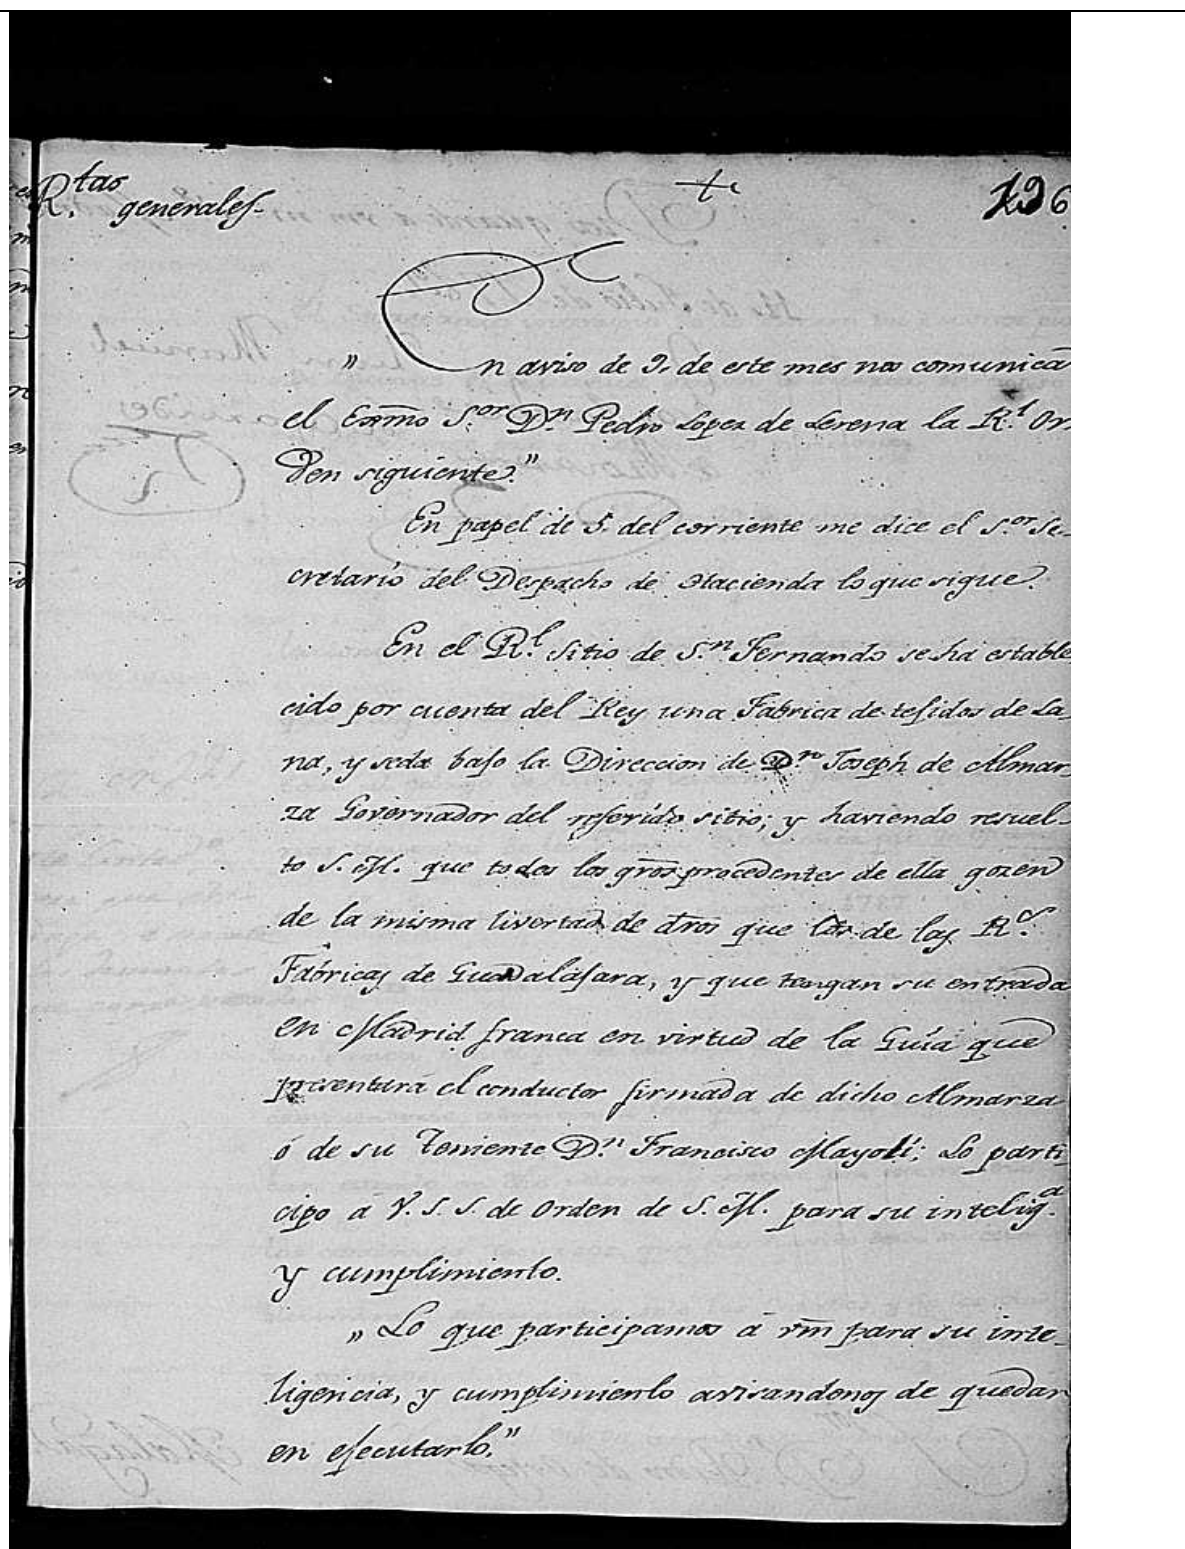 R.tas generales- + 136
" En aviso de 9. de este mes nos comunica
el Exmo S.or D.n Pedro Lopez de Lerena la R.l Or-
den siguiente."
En papel de 5. del corriente me dice el S.or Se-
cretario del Despacho de Hacienda lo que sigue.
En el R.l Sitio de S.n Fernando se ha estable-
cido por cuenta del Rey una Fabrica de tesidos de La-
na, y seda bajo la Direccion de D.n Joseph de Almar-
za Governador del referido sitio; y haviendo resuel-
to S. M. que todos los gros procedentes de ella gozen
de la misma livertad de dros que los de las R.s
Fabricas de Guadalajara, y que tengan su entrada
en Madrid franca en virtud de la Guia que
presentará el conductor firmada de dicho Almarza
ó de su Teniente D.n Francisco Mayoli; Lo parti-
cipo a V. S. S. de orden de S. M. para su intelig.a
y cumplimiento.
" Lo que participamos á vm para su inte-
ligencia, y cumplimiento avisandonos de quedar
en ejecutarlo."